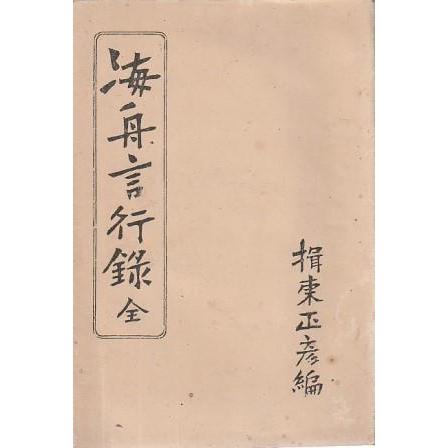 海舟言行錄 全
揖東正彦編